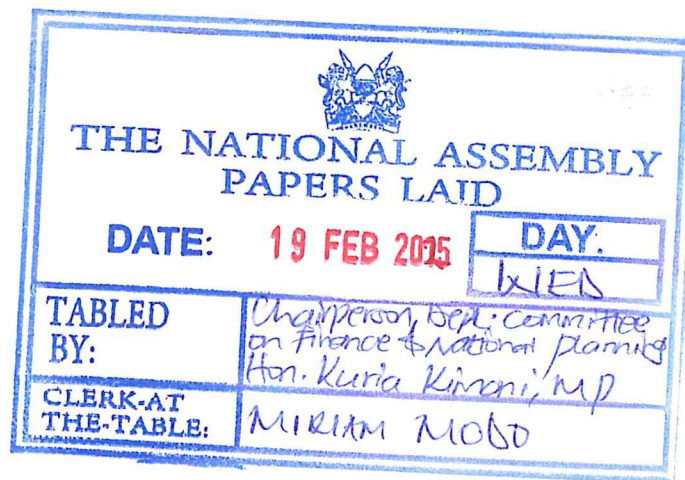 THE NATIONAL ASSEMBLY
PAPERS LAID
DATE: 19 FEB 2025
DAY.
WED
TABLED BY:
Chairperson, Dept. Committee
on Finance & National planning
Hon. Kuria Kimani, MP
CLERK-AT THE-TABLE:
MIRIAM MODO